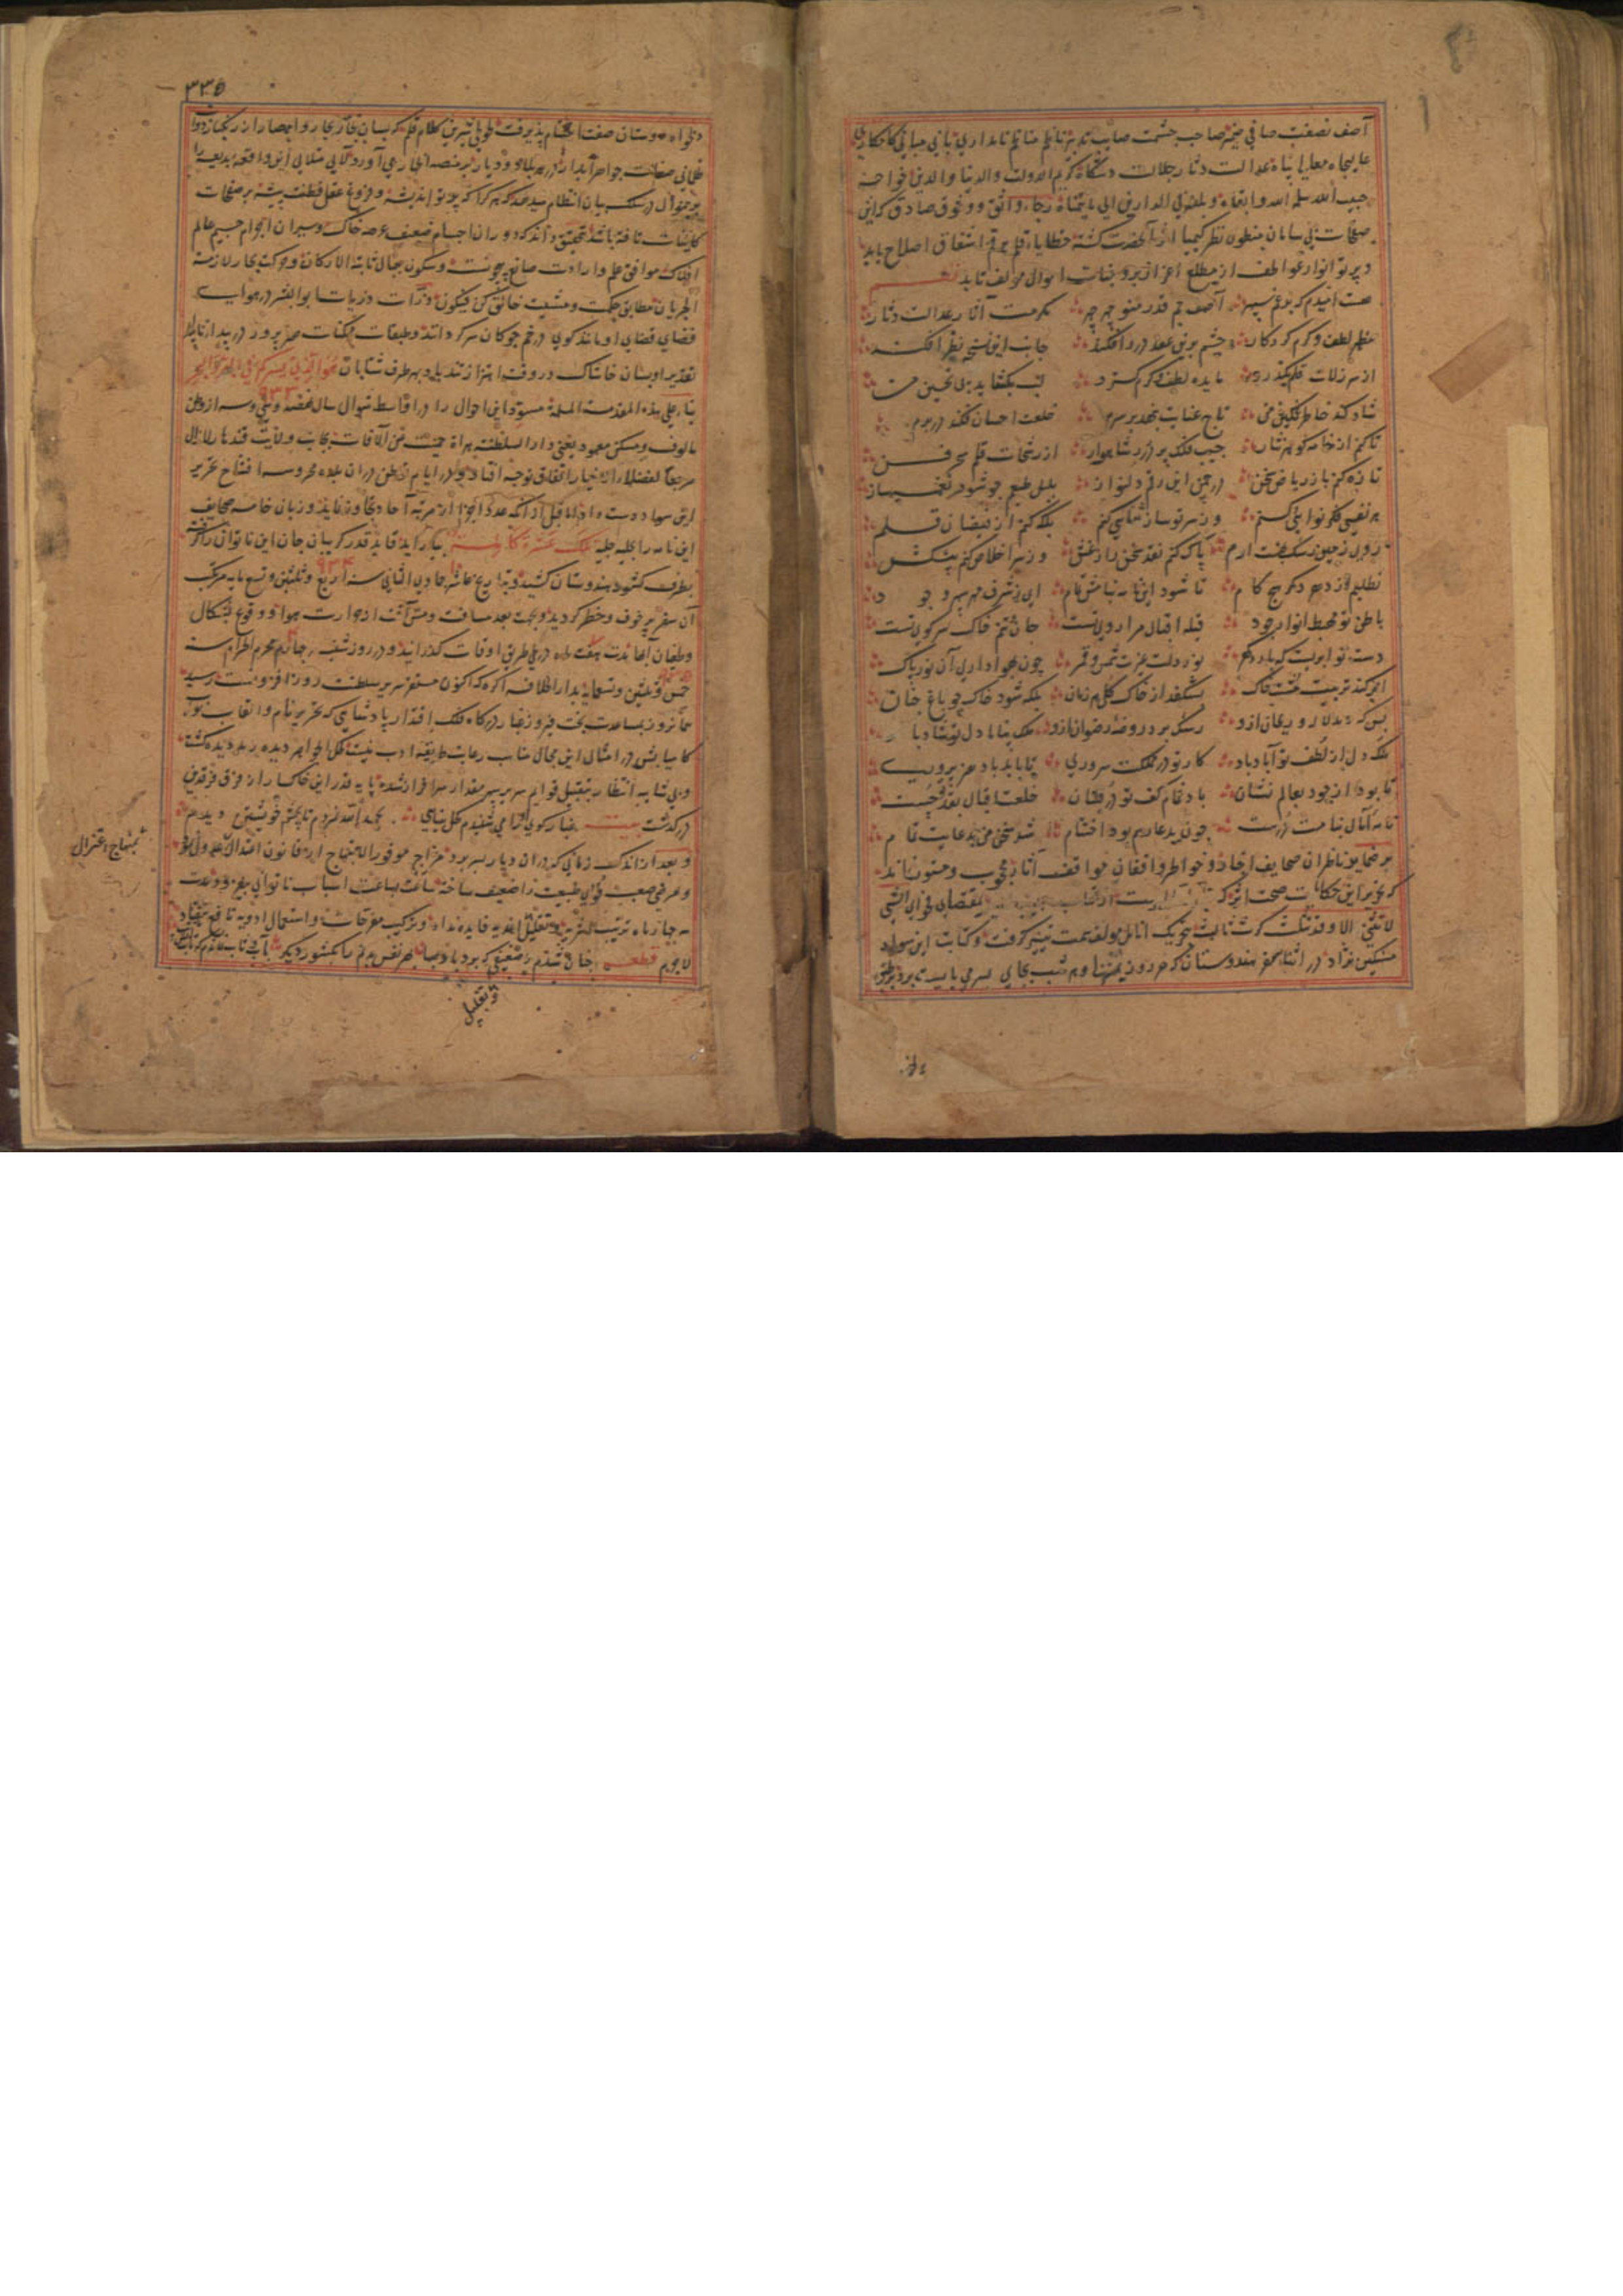 آصف نصفت صافی ضمیر صاحب حشمت صایب تدبیر ناظم مناظم نامداری بانی مبانی کامکاری
عالیجاه معالی پناه عدالت دثار جلالت دستگاه کریم الدولت والدنیا والدین خواجه
حبیب الله سلمه الله وابقاه وبلغه فی الدارین الی ما یتمناه رجاء واثق ووثوق صادق که این
صفحات بی سامان منظور نظر کیمیا اثر آنحضرت گشته خطایاء قلم برقم اشفاق اصلاح یابد
و پرتو انوار عواطف از مطلع اعزاز بر وجنات احوال مؤلف تابد
هست امیدم که بدور سپهر آصف جم قدر منوچهر چهر مکرمت آثار عدالت دثار
مظهر لطف و کرم کردکار چشم برین عقد درر افکند جانب این نسخه نظر افکند
از سر زلات قلم بگذرد مایده لطف و کرم گسترد لب بگشاید پی تحسین من
شاد کند خاطر غمگین من تاج عنایت بنهد بر سرم خلعت احسان فکند در برم
تا کنم از خامه گوهر نثار جیب فلک پر در شاهوار از رشحات قلم سحر فن
تازه کنم باز ریاض سخن در چمن این رقم دلنواز بلبل طبعم چو شود نغمه ساز
هر نفسی فکر نوایی کنم وز سر نو ساز ثنایی کنم بلکه کنم از فیضان قلم
روی زمین رشک بهشت ارم پاک کنم نقد سخن را ز غش وز سر اخلاص کنم پیشکش
نطلبم از دهر دگر هیچ کام تا شود این نامه بنامش تمام ای ز شرف مهر سپهر وجود
باطن تو مهبط انوار جود قبله اقبال مرا روی تست جان و تنم خاک سر کوی تست
دست تو ابریست که بارد کرم نور دلت غیرت شمس و قمر چون بهوا داری آن نور پاک
ابر کند تربیت تخت خاک بشکفد از خاک گل هر زمان بلکه شود خاک چو باغ جنان
بس که دمد لاله و ریحان ازو رشک برد روضه رضوان ازو ملک پناها دل تو شاد باد
ملک دل از لطف تو آباد باد کار تو در مملکت سروری تا بابد باد هنر پروری
تا بود از جود بعالم نشان باد غمام کف تو در فشان خلعت اقبال بقدت چست
نامه آمال بنامت درست چون بدعا ریم بود اختتام شد سخن من بدعایت تمام
بر ضمایر ناظران صحایف اخبار و خواطر واقفان مواقف آثار محجوب و مستور نماند
که تحریر این حکایت صحت اثر که بمقتضای فحوای الشی
لا یثنی الا وقد یثلث کرت ثالث بتحریک انامل مؤلف سمت تیسیر گرفت و کتابت این سواد
مشکین نژاد در اثناء سفر هندوستان که هر روز بمنزل و هر شب بجایی بسر می بایست برد بر طبق
۳۳۵
دلخواه دوستان صفت اختتام پذیرفت طوطی شیرین کلام قلم که بسان تجار بحار و امصار از زنگبار دوات
ظلمانی صفات جواهر آبدار در هر بلاد و دیار بر منصه اظهار می آورد لآلی متلالی این واقعه بدیعه را
برینمنوال در سلک بیان انتظام میدهد که هر کرا که پرتو اندیشه و فروغ عقل فطنت پیشه بر صفحات
کاینات تافته باشد بتحقیق داند که دوران اجسام ضعیف عرصه خاک و سیران اجرام جسیم عالم
افلاک موافق علم و ارادت صانع بیچونست و سکون جبال ثابتة الارکان و حرکت بحار لازمة
الجریان مطابق حکمت و مشیت خالق کن فیکون ذرات ذریات ابو البشر در هوای
فضای قضای او مانند گوی در خم چوکان سرگردانند و طبقات ممکنات هنرپرور در بیدا ناپیدا
تقدیر او بسان خاشاک در وقت اهتزاز تند باد بهر طرف شتابان هو الذی یسیرکم فی البر والبحر
۹۳۳
بناء علی هذه المقدمة المسلمة مسود این احوال را در اواسط شوال سال نهصد و سی و سه از وطن
مالوف و مسکن معهود یعنی دارالسلطنه هراة حمیت عن الآفات بجانب ولایت قندهار لازال
مرجعا للفضلاء الاخیار اتفاق توجه افتاد و در ایام توطن در ان بلده محروسه افتتاح تحریر
این سواد دست داد اما قبل از آنکه عدد اجزا از مرتبه آحاد تجاوز نماید و زبان خامه صحایف
این نامه را بحلیه جلیه تلک عشرة کاملة بیاراید قاید قدر گریبان جان این ناتوان را گرفته
۹۳۴
بطرف کشور هندوستان کشید و بتاریخ عاشر جمادی الثانی سنه اربع و ثلثین و تسعمایه مرتکب
آن سفر پر خوف و خطر گردید و بجهت بعد مسافت و مشقت از حرارت هوا و وقوع لشکال
و طغیان آبها مدت هفت ماه در طی طریق اوقات گذرانید و در روز شنبه چهارم محرم الحرام سنه
خمس و ثلثین و تسعمایة بدار الخلافه آگره که اکنون مستقر سریر سلطنت روز افزونست رسید
هم آنروز بمساعدت بخت فیروز غبار درگاه فلک اقتدار پادشاهی که تحریر نام و القاب نواب
کامیابش در امثال این مجال مناسب رعایت طریقه ادب نیست کحل الجواهر دیده رمد دیده گشت
و بی شایبه انتظار بتقبیل قوایم سریر سپهر مقدار سرافراز شده پایه قدر این خاکسار از فرق فرقدین
درگذشت بیت غبار کوی ترا می شنیدم کحل بینایی بحمد الله نمردم تا بچشم خویشتن دیدم
و بعد از اندک زمانی که در ان دیار بسر برد مزاج موفور الابتهاج از قانون اعتدال عدول نمود
و مرضی صعب قوای طبیعت را ضعیف ساخته ساعت بساعت اسباب ناتوانی بیفزود و مدت
سه چهار ماه ترتیب اشربه و تقلیل اغذیه فایده نداد و ترکیب مفرحات و استعمال ادویه نافع نیفتاد
لاجرم قطعه چنان شدم ز ضعیفی که برد باد صبا بهر نفس بدنم را بکشور دیگر